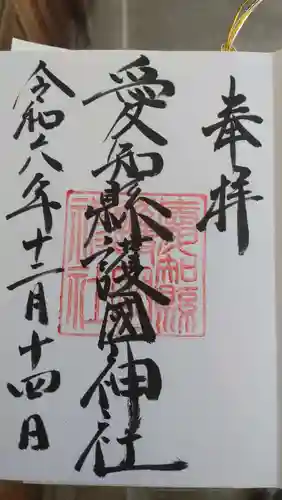 奉拝
愛知縣護國神社
令和六年十二月十四日
愛知縣護國神社